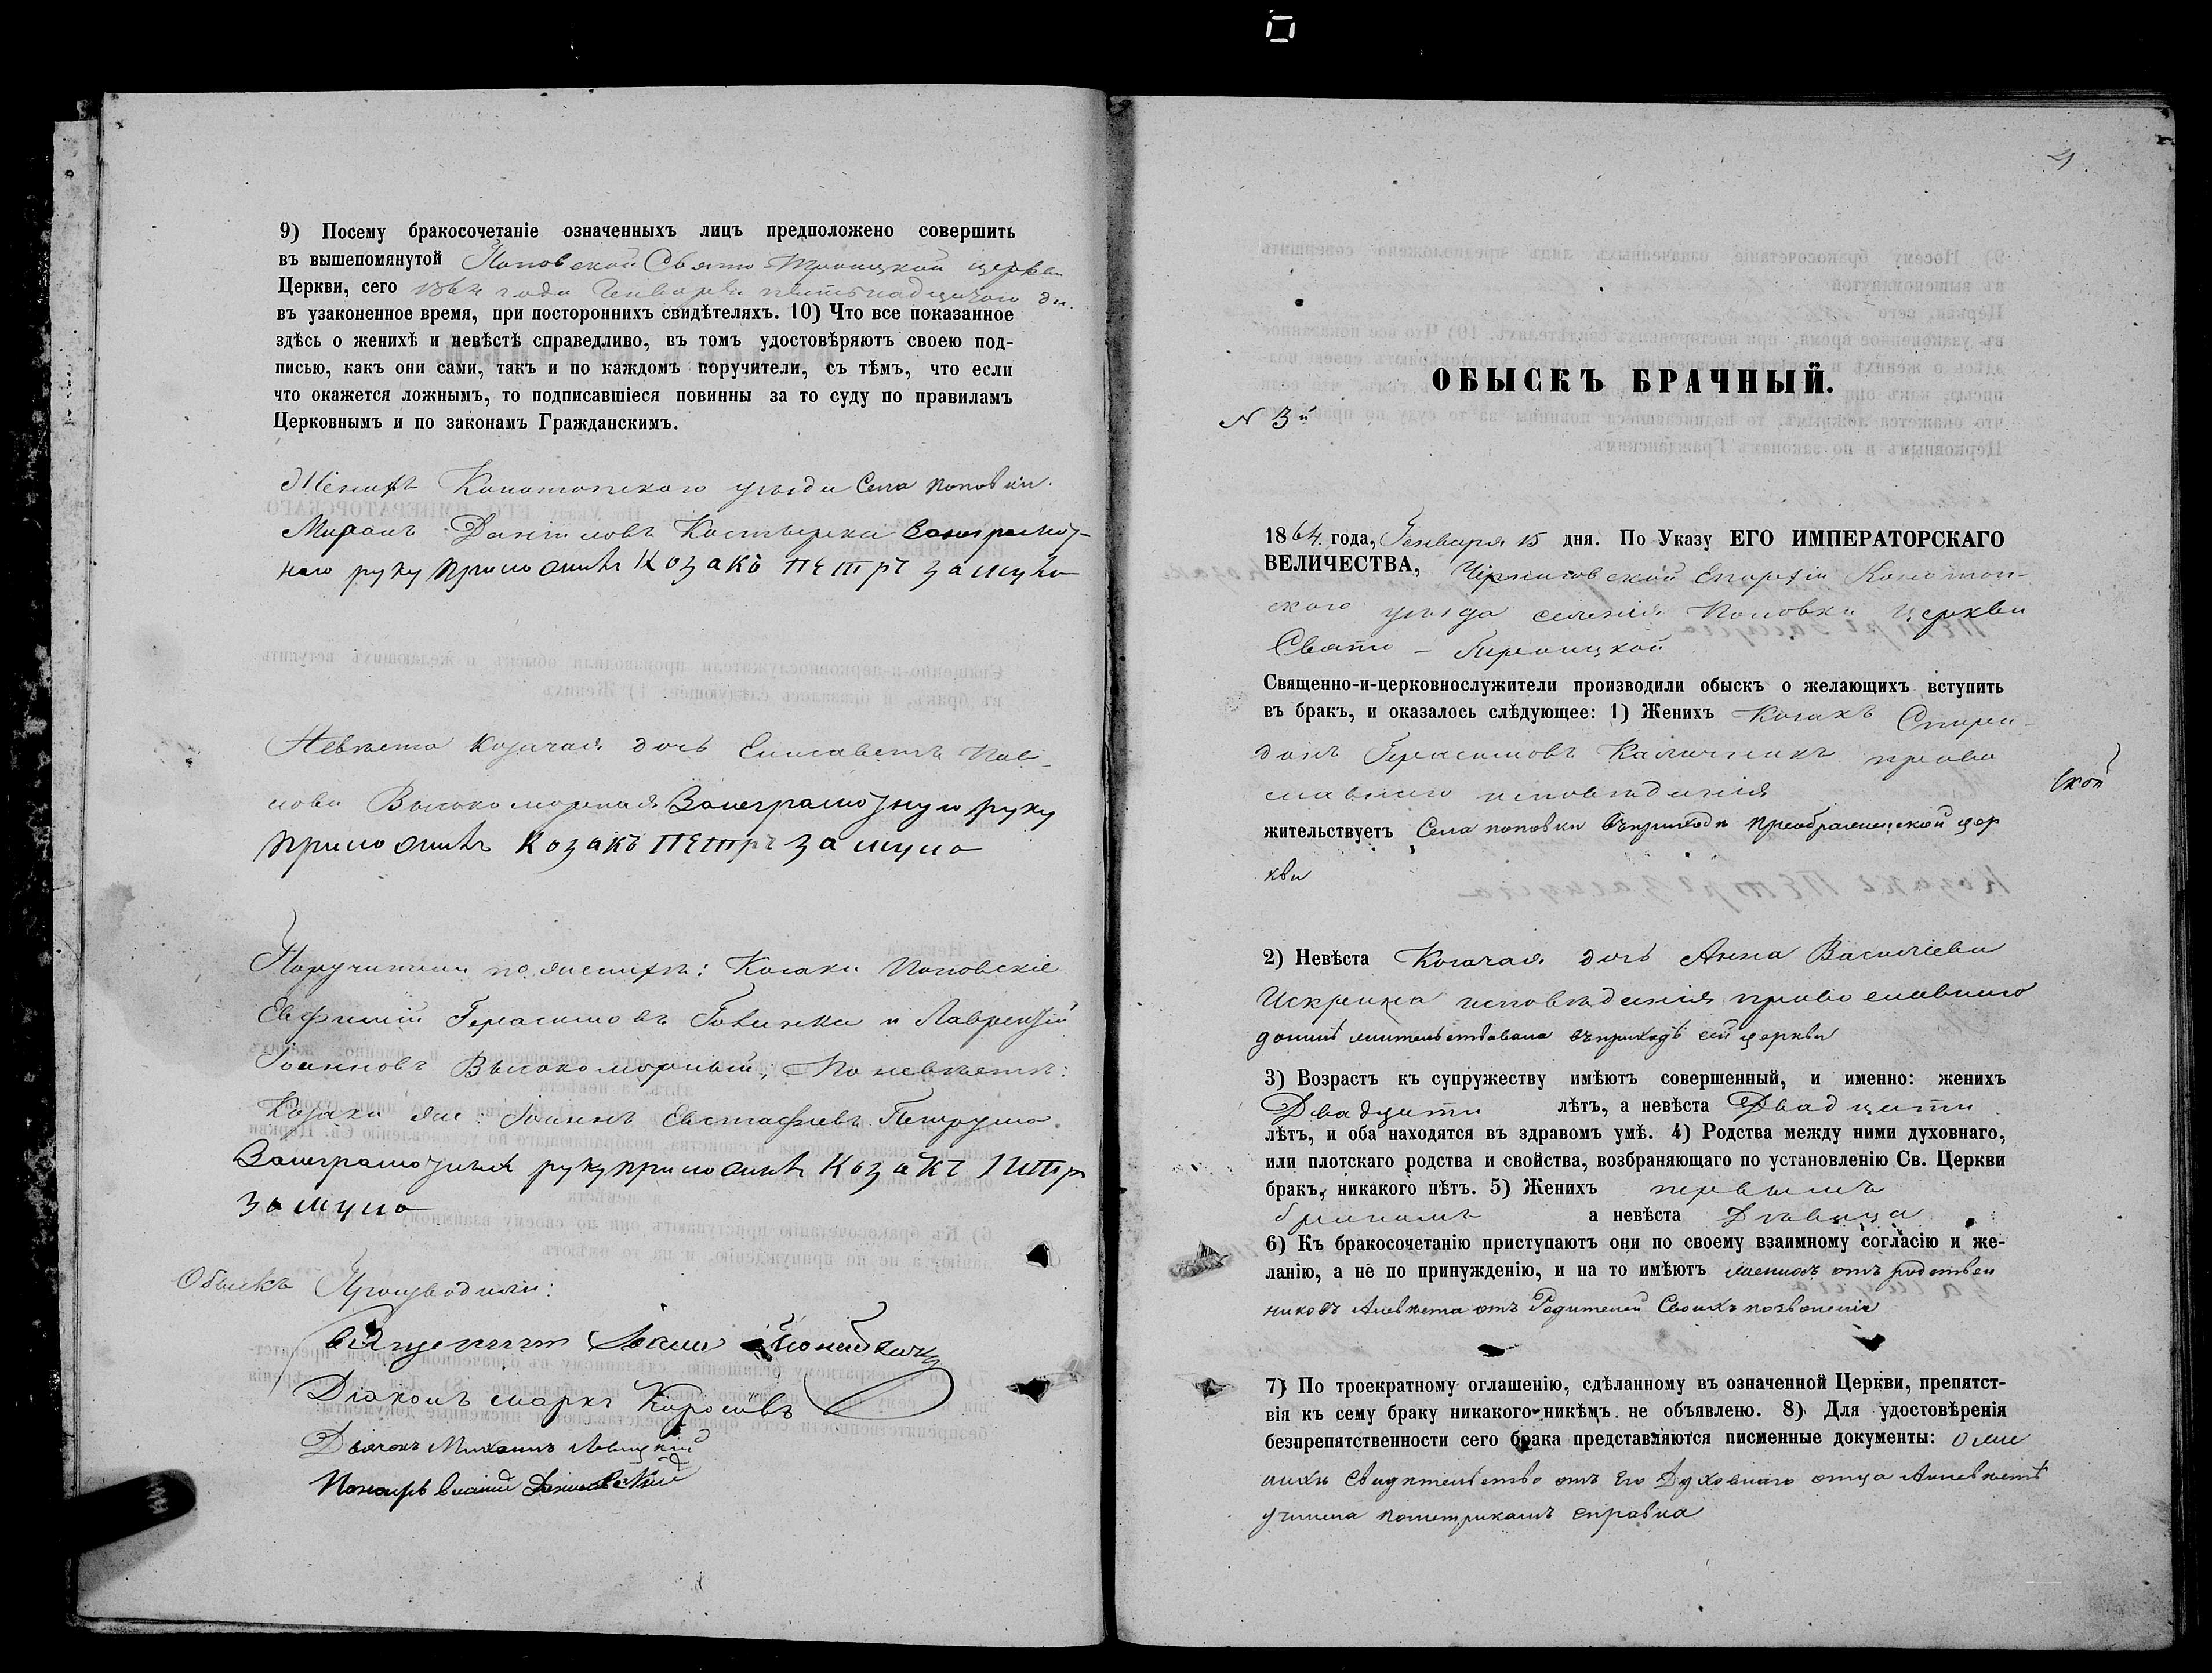 9) Посему бракосочетаніе означенныхъ лицъ предположено совершить
въ вышепомянутой Поповской Свято-Троицкой церкви
Церкви, сего 1864 года Генваря пятьнадцатого дн.
въ узаконенное время, при постороннихъ свидѣтеляхъ. 10) Что все показанное
здѣсь о женихѣ и невѣстѣ справедливо, въ томъ удостовѣряютъ своею под-
писью, какъ они сами, такъ и по каждомъ поручители, съ тѣмъ, что если
что окажется ложнымъ, то подписавшіеся повинны за то суду по правиламъ
Церковнымъ и по законамъ Гражданскимъ.
Женихъ Конотопского уѣзда Села Поповки
Миронъ Даниловъ Костырка
него руку приложилъ Козакъ Петръ
Невѣста козачая дочь Елисаветъ Пав-
лова Высокоморная руку
приложилъ Козакъ Петръ
Поручители по женихѣ: Козаки Поповскіе
Евфимій Герасимовъ и Лаврентій
Іоанновъ Высокоморный, По невѣстѣ:
Козаки же: Іоаннъ Евстафіевъ
руку приложилъ Козакъ Петр
Обыскъ Производили:
Священникъ
Діаконъ Марко
Дьячокъ Михаилъ Левицкій
Пономарь
4
ОБЫСКЪ БРАЧНЫЙ.
N 3й
1864 года, Генваря 15 дня. По Указу ЕГО ИМПЕРАТОРСКАГО
ВЕЛИЧЕСТВА, Черниговской Епархіи Конотоп-
ского уѣзда селенія Поповки Церкви
Свято-Троицкой
Священно-и-церковнослужители производили обыскъ о желающихъ вступить
въ бракъ, и оказалось слѣдующее: 1) Женихъ Козакъ Спири-
донъ Герасимовъ Калачникъ право
славного исповѣданія
жительствуетъ Села Поповки въ приходѣ Преображенской цер
ской
кви
2) Невѣста Козачая дочь Анна Василіева
Искрина исповѣданія православного
жительствовала въ приходѣ сей церкви
3) Возрастъ къ супружеству имѣютъ совершенный, и именно: женихъ
Двадцати лѣтъ, а невѣста Двадцати
лѣтъ, и оба находятся въ здравомъ умѣ. 4) Родства между ними духовнаго,
или плотскаго родства и свойства, возбраняющаго по установленію Св. Церкви
бракъ, никакого нѣтъ. 5) Женихъ первымъ
бракомъ а невѣста Дѣвица
6) Къ бракосочетанію приступаютъ они по своему взаимному согласію и же-
ланію, а не по принужденію, и на то имѣютъ женихъ отъ родствен
никовъ а невѣста отъ Родителей Своихъ позволеніе
7) По троекратному оглашенію, сдѣланному въ означенной Церкви, препятст-
вія къ сему браку никакого никѣмъ не объявлено. 8) Для удостовѣренія
безпрепятственности сего брака представляются писменные документы: о же
нихѣ Свидѣтельство отъ Его Духовнаго отца а о невѣстѣ
учинена по метрикамъ справка